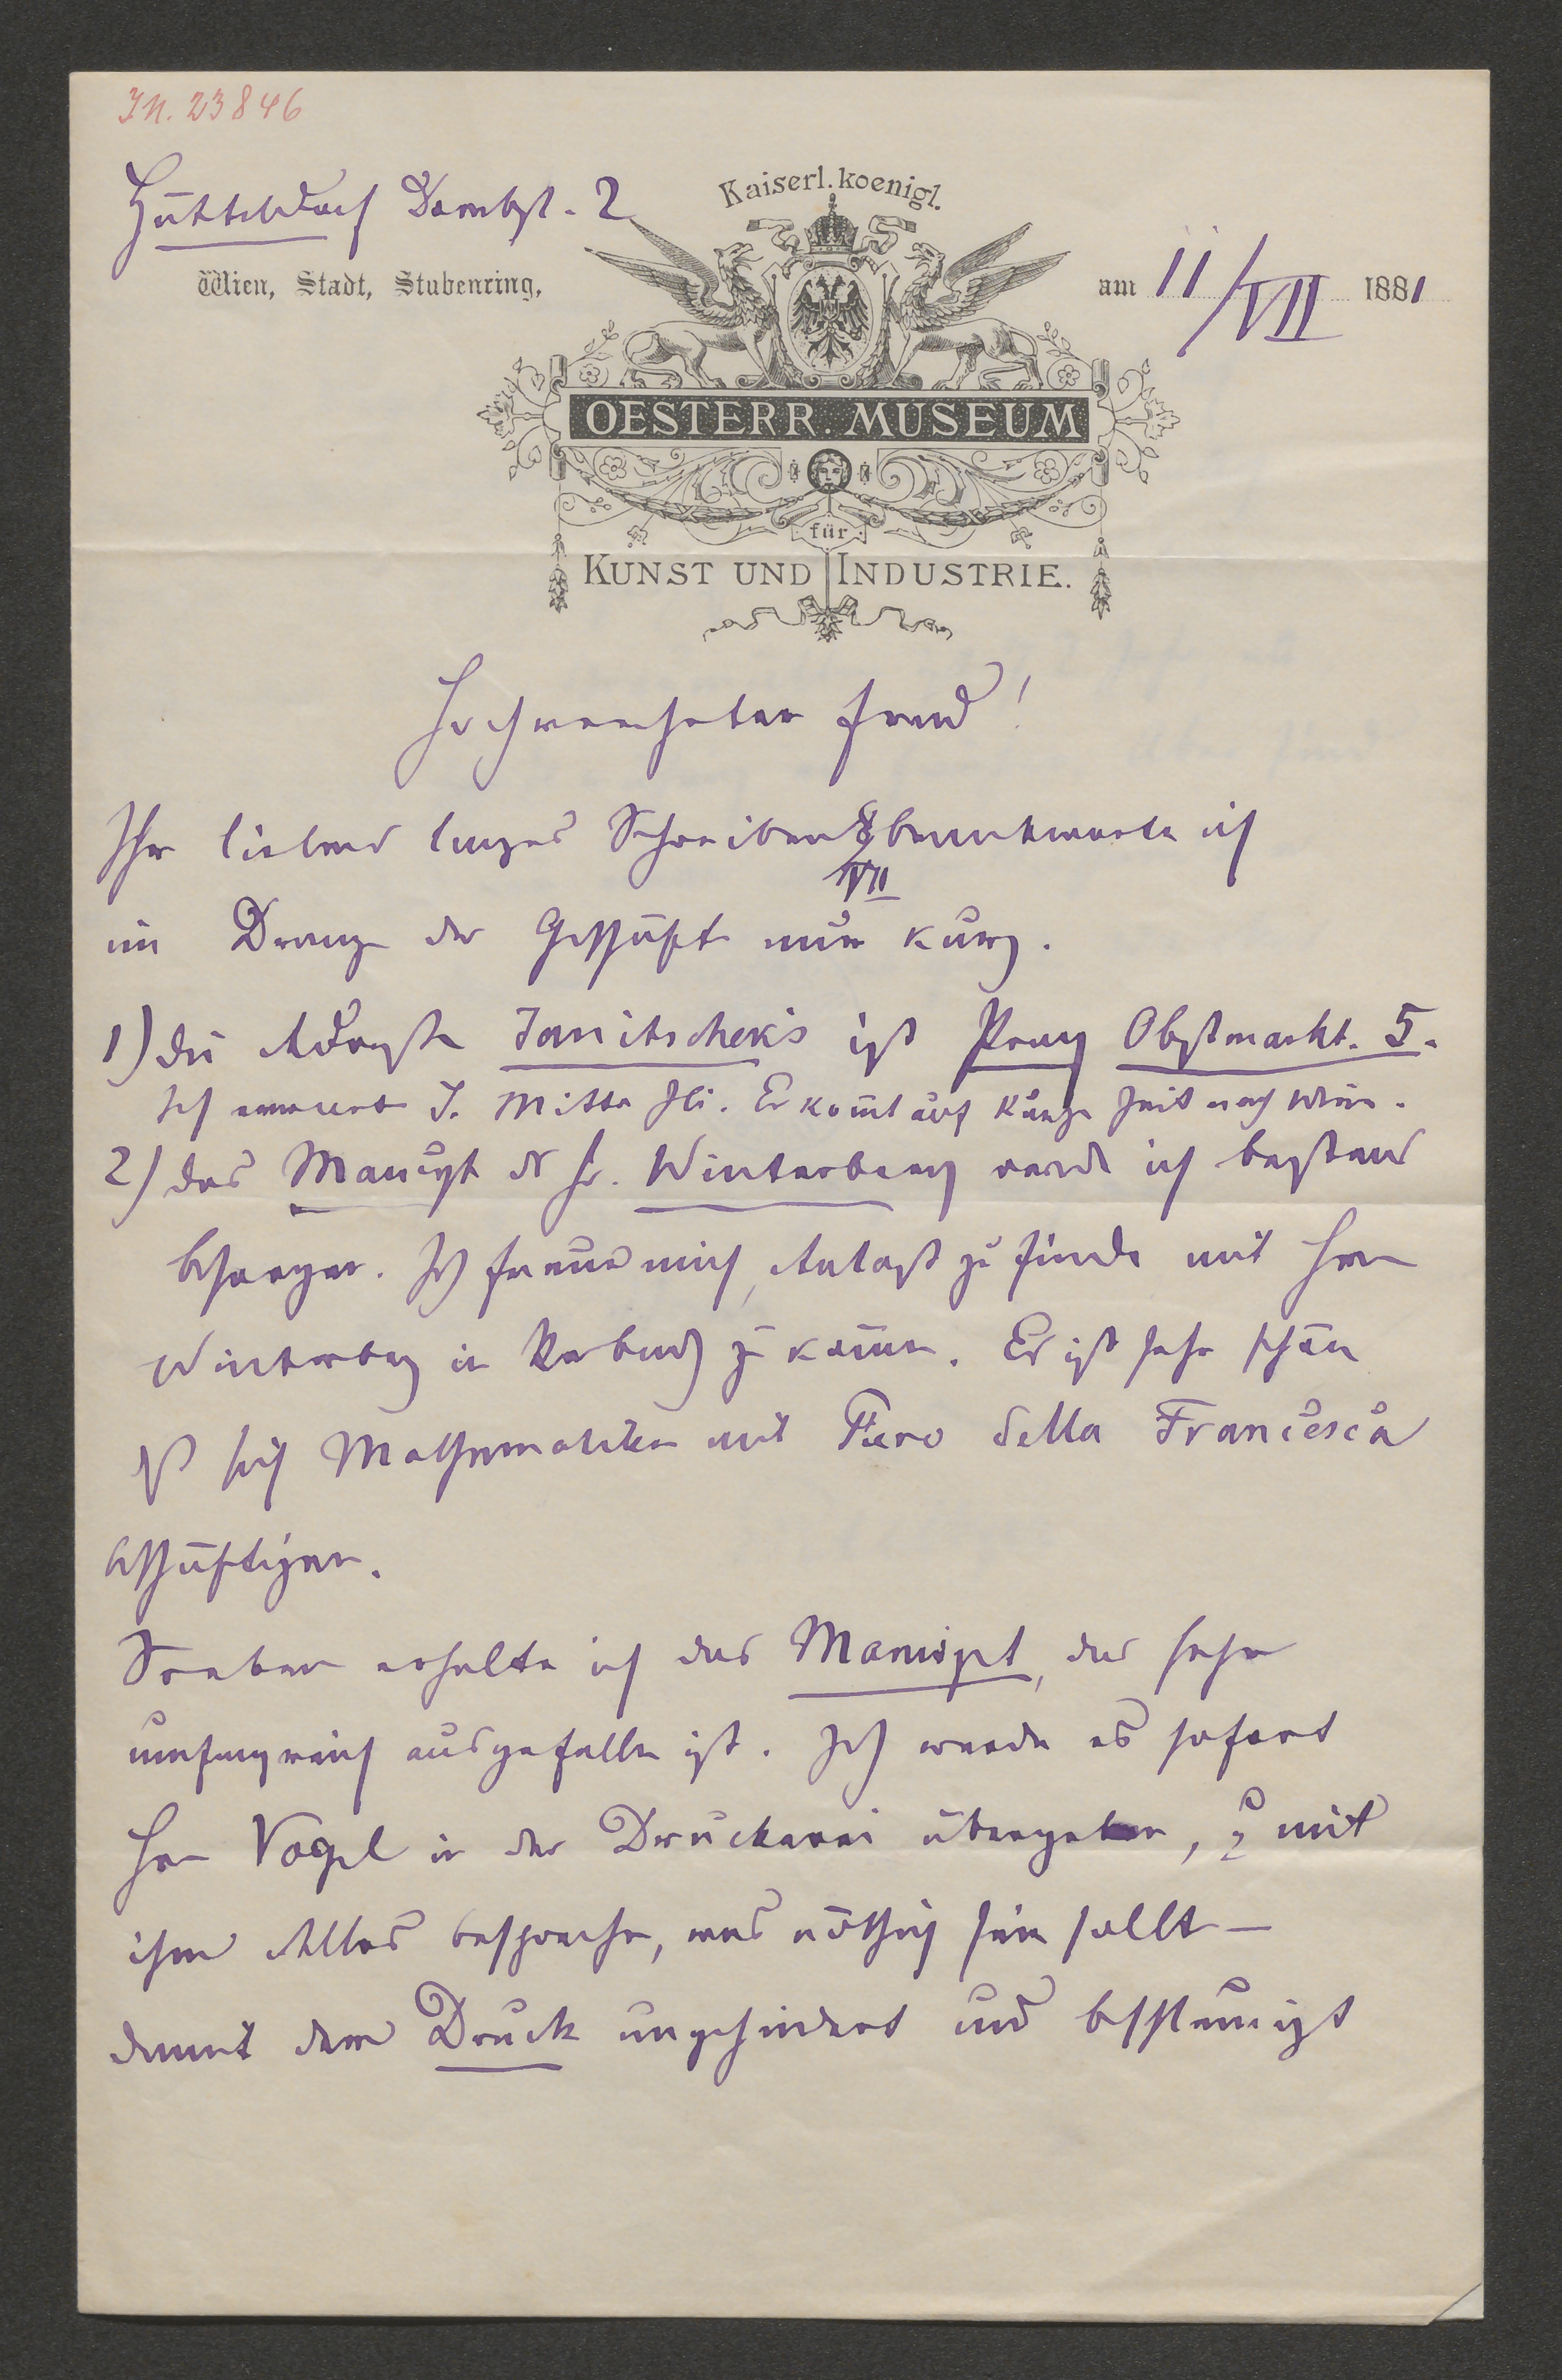 IN. 23846
Hütteldorf Dornbgst. 2
Kaiserl. koenigl.
Wien, Stadt, Stubenring,
am 11/VII 1881
OESTERR. MUSEUM
für
KUNST UND INDUSTRIE.
Hochverehrter Freund!
Ihr liebes langes Schreiben 8/VII beantworte ich
im Drange der Geschäfte nur kurz.
1) Die Adresse Janitschek's ist Prag Obstmarkt. 5.
Ich erwarte J. Mitte Juli. Er kom̄t auf kurze Zeit nach Wien.
2) das Manuspt des H. Winterberg werde ich bestens
besorgen. Ich freue mich, Anlass zu finden mit Herrn
Winterberg in Verbindg zu kom̄en. Es ist sehr schön
dß sich Mathematiker mit Piero della Francesca
beschäftigen.
Soeben erhalte ich das Manuspt, das sehr
umfangreich ausgefallen ist. Ich werde es sofort
Herrn Vogel in der Druckerei übergeben, u mit
ihm Alles besprechen, was nöthig sein sollte –
damit der Druck ungehindert und beschleunigt